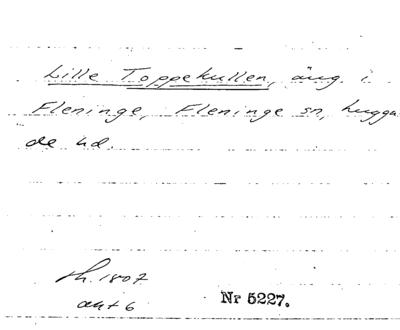 Lille Toppekullen, äng i
Fleninge, Fleninge sn, Luggu
de hd.
sh. 1807
akt 6
Nr 5227.